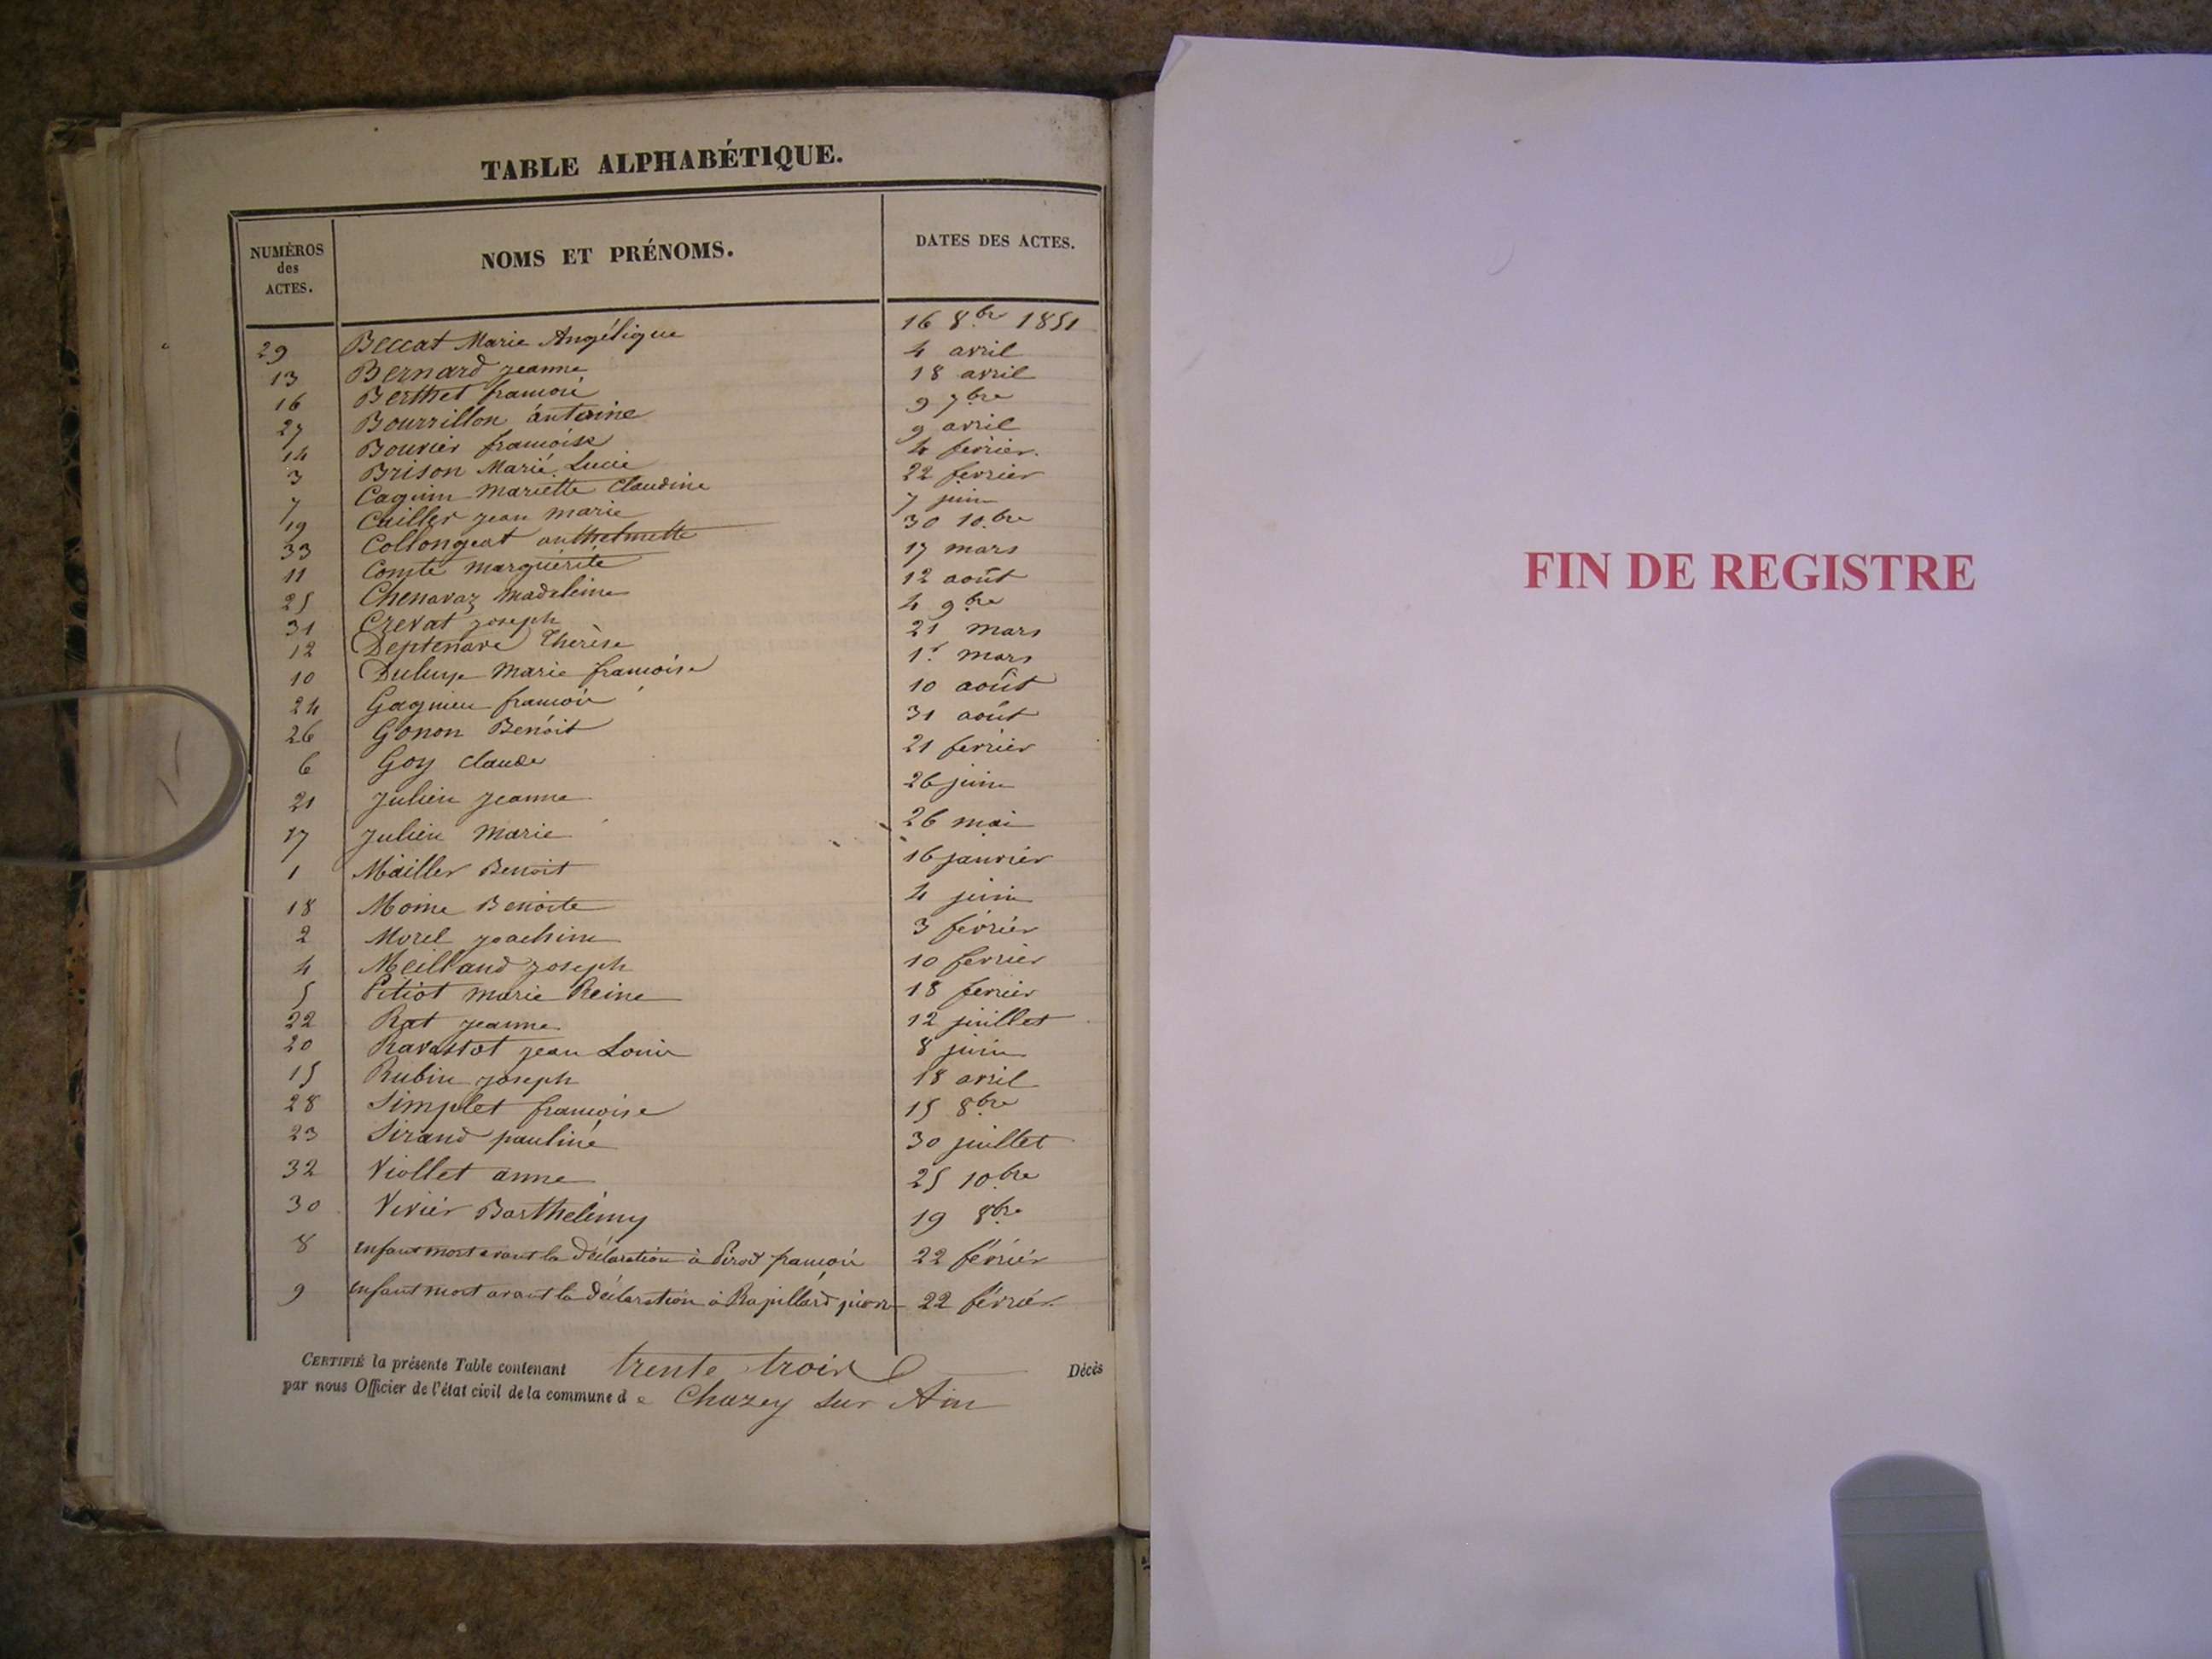 TABLE ALPHABÉTIQUE.
NUMÉROS des ACTES. NOMS ET PRÉNOMS. DATES DES ACTES.
29 Beccat Marie Angélique 16 8.bre 1851
13 Bernard jeanne 4 avril
16 Berthet francois 18 avril
27 Bourrillon antoine 9 7bre
14 Bouvier francoise 9 avril
3 Brison Marie Lucie 4 fevrier.
7 Caguin mariette Claudine 22 fevrier
19 Cuiller jean marie 7 juin
33 Collongeat anthelmette 30 10.bre
11 Comte marguérite 17 mars
25 Chenavaz madeleine 12 août
31 Crevat joseph 4 9.bre
12 Deptenave Thérèse 21 mars
10 Marie francoise 1.r mars
24 Gagnieu francois 10 août
26 Gonon Benoit 31 août
6 Goy claude 21 fevrier
21 Julien jeanne 26 juin
17 Julien marie 26 mai
1 Mailler Benoit 16 janvier
18 Moine Benoite 4 juin
2 Morel joachim 3 février
4 Meilland joseph 10 fevrier
5 Petiot marie Reine 18 fevrier
22 Rat jeanne 12 juillet
20 Ravastot jean Louis 8 juin
15 Rubin joseph 18 avril
28 Simplet francoise 15 8bre
23 Sirand pauline 30 juillet
32 Viollet anne 25 10.bre
30 Vivier Barthelemy 19 8bre
8 enfant mort avant la déclaration à Pirod francois 22 février
9 enfant mort avant la déclaration à Rapillard pierre 22 février.
CERTIFIÉ la présente Table contenant trente trois Décès
par nous Officier de l'état civil de la commune de Chazey sur Ain
FIN DE REGISTRE